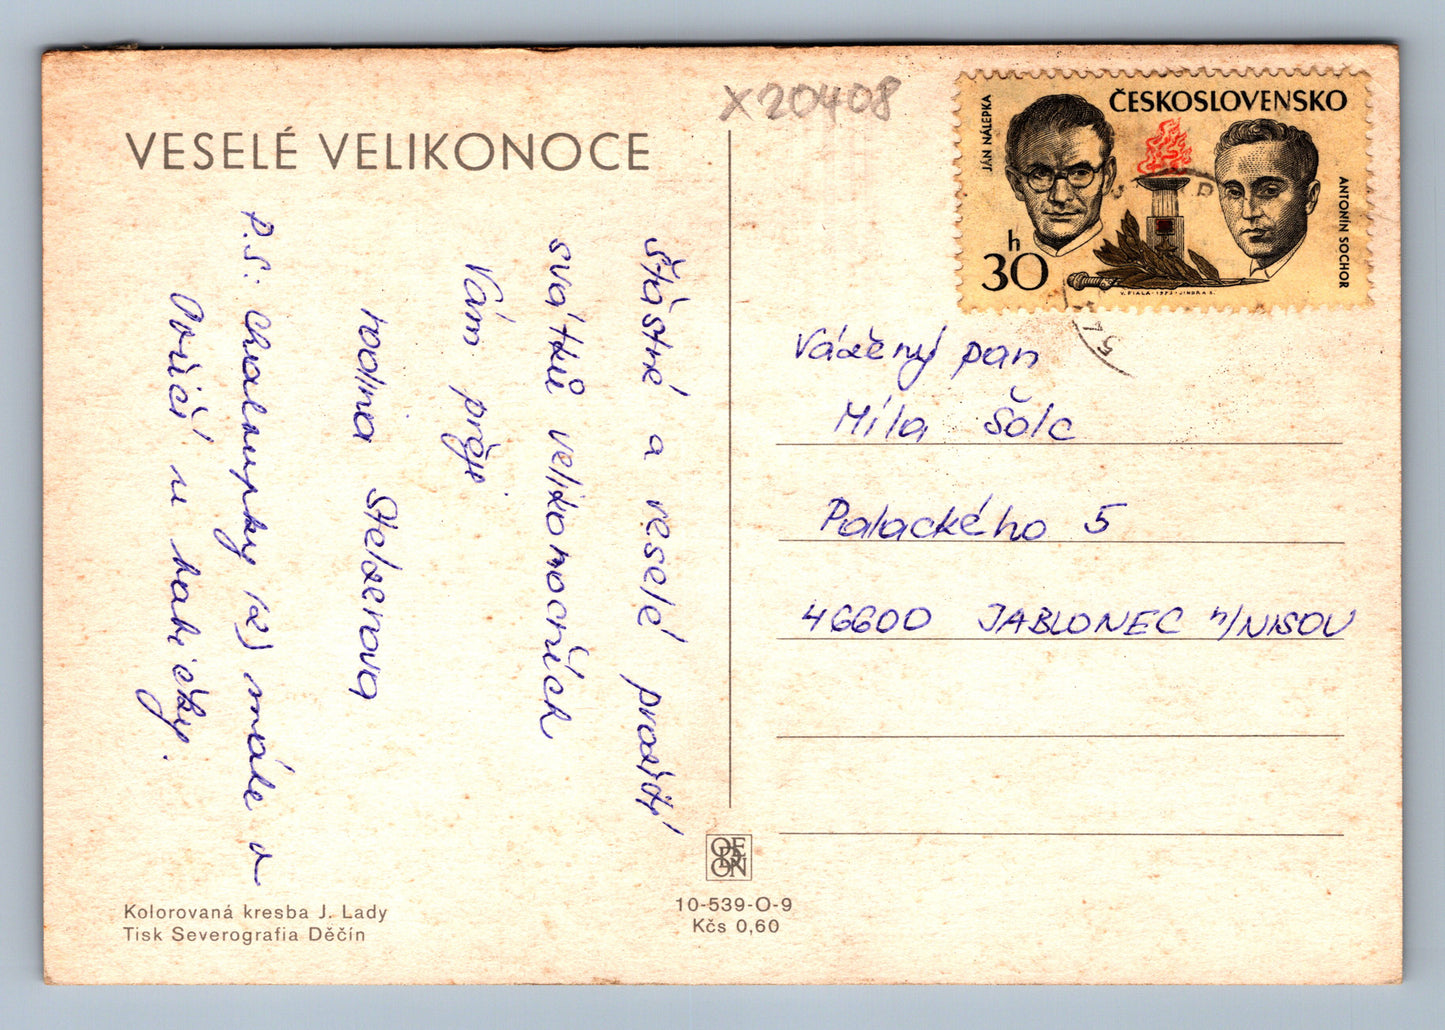 VESELÉ VELIKONOCE
X20408
ČESKOSLOVENSKO
JÁN NÁLEPKA
ANTONÍN SOCHOR
30 h
V. FIALA - 1973 - JINDRA S.
Šťastné a veselé prožití
svátků velikonočních
Vám přeje
rodina Stelzerova
P.S. Chaloupky (2) máke a
u babičky.
Vážený pan
Míla Šolc
Palackého 5
46600 JABLONEC n/NISOU
ODEON
10-539-O-9
Kčs 0,60
Kolorovaná kresba J. Lady
Tisk Severografia Děčín